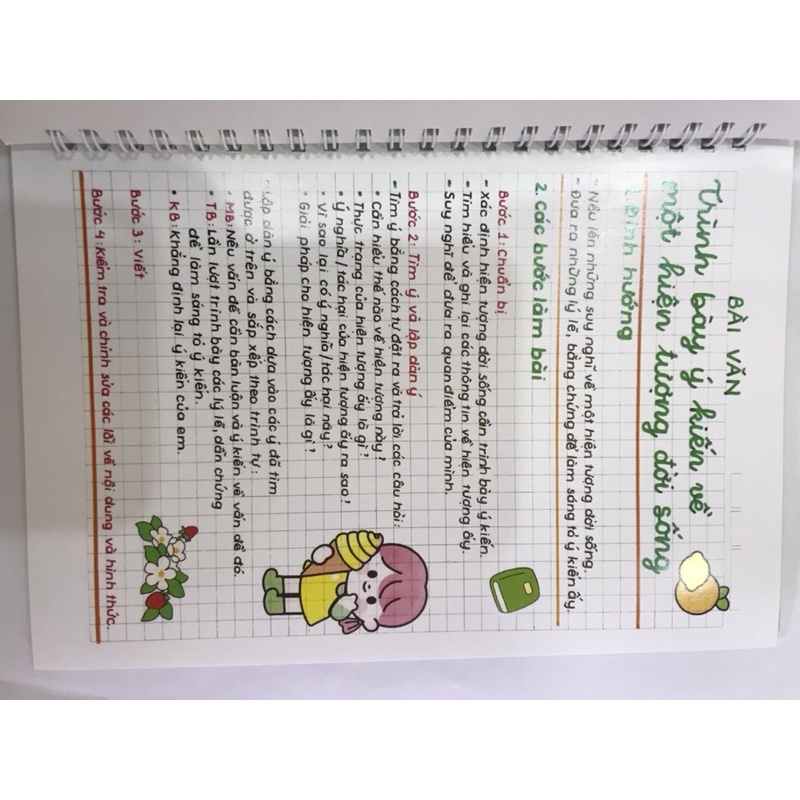 BÀI VĂN
Trình bày ý kiến về
một hiện tượng đời sống
1. Định hướng
- Nêu lên những suy nghĩ về một hiện tượng đời sống.
- Đưa ra những lý lẽ, bằng chứng để làm sáng tỏ ý kiến ấy.
2. Các bước làm bài
Bước 1: Chuẩn bị
- Xác định hiện tượng đời sống cần trình bày ý kiến.
- Tìm hiểu và ghi lại các thông tin về hiện tượng ấy.
- Suy nghĩ để đưa ra quan điểm của mình.
Bước 2: Tìm ý và lập dàn ý
- Tìm ý bằng cách tự đặt ra và trả lời các câu hỏi:
• Cần hiểu thế nào về hiện tượng này?
• Thực trạng của hiện tượng ấy là gì?
• Ý nghĩa / tác hại của hiện tượng ấy ra sao?
• Vì sao lại có ý nghĩa / tác hại này?
• Giải pháp cho hiện tượng ấy là gì?
- Lập dàn ý bằng cách dựa vào các ý đã tìm
được ở trên và sắp xếp theo trình tự:
• MB: Nêu vấn đề cần bàn luận và ý kiến về vấn đề đó.
• TB: Lần lượt trình bày các lý lẽ, dẫn chứng
để làm sáng tỏ ý kiến.
• KB: Khẳng định lại ý kiến của em.
Bước 3: Viết
Bước 4: Kiểm tra và chỉnh sửa các lỗi về nội dung và hình thức.